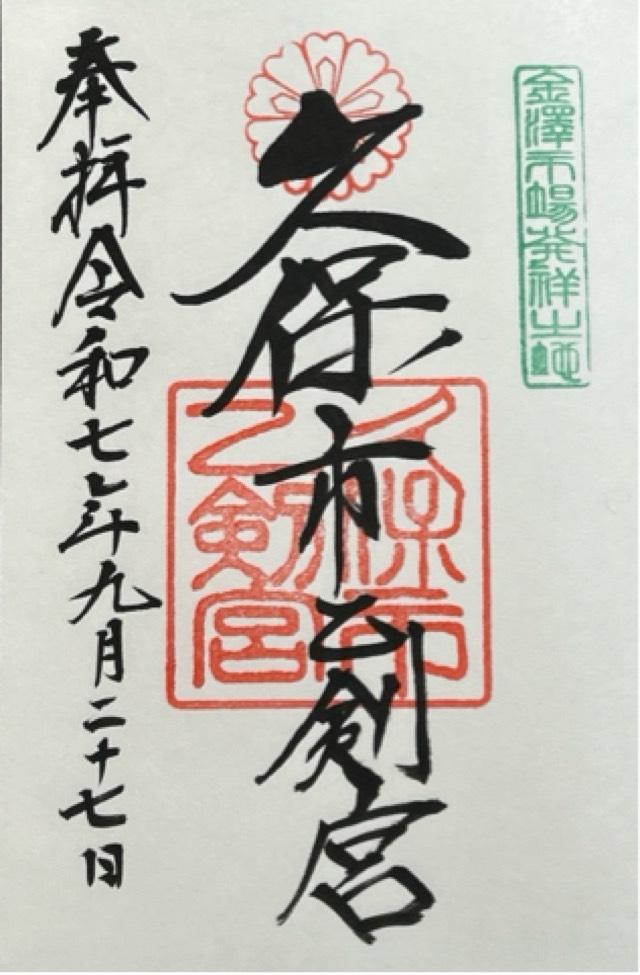 金澤市場発祥之地
久保市乙剣宮
久保市
乙剣宮
奉拝令和七年九月二十七日